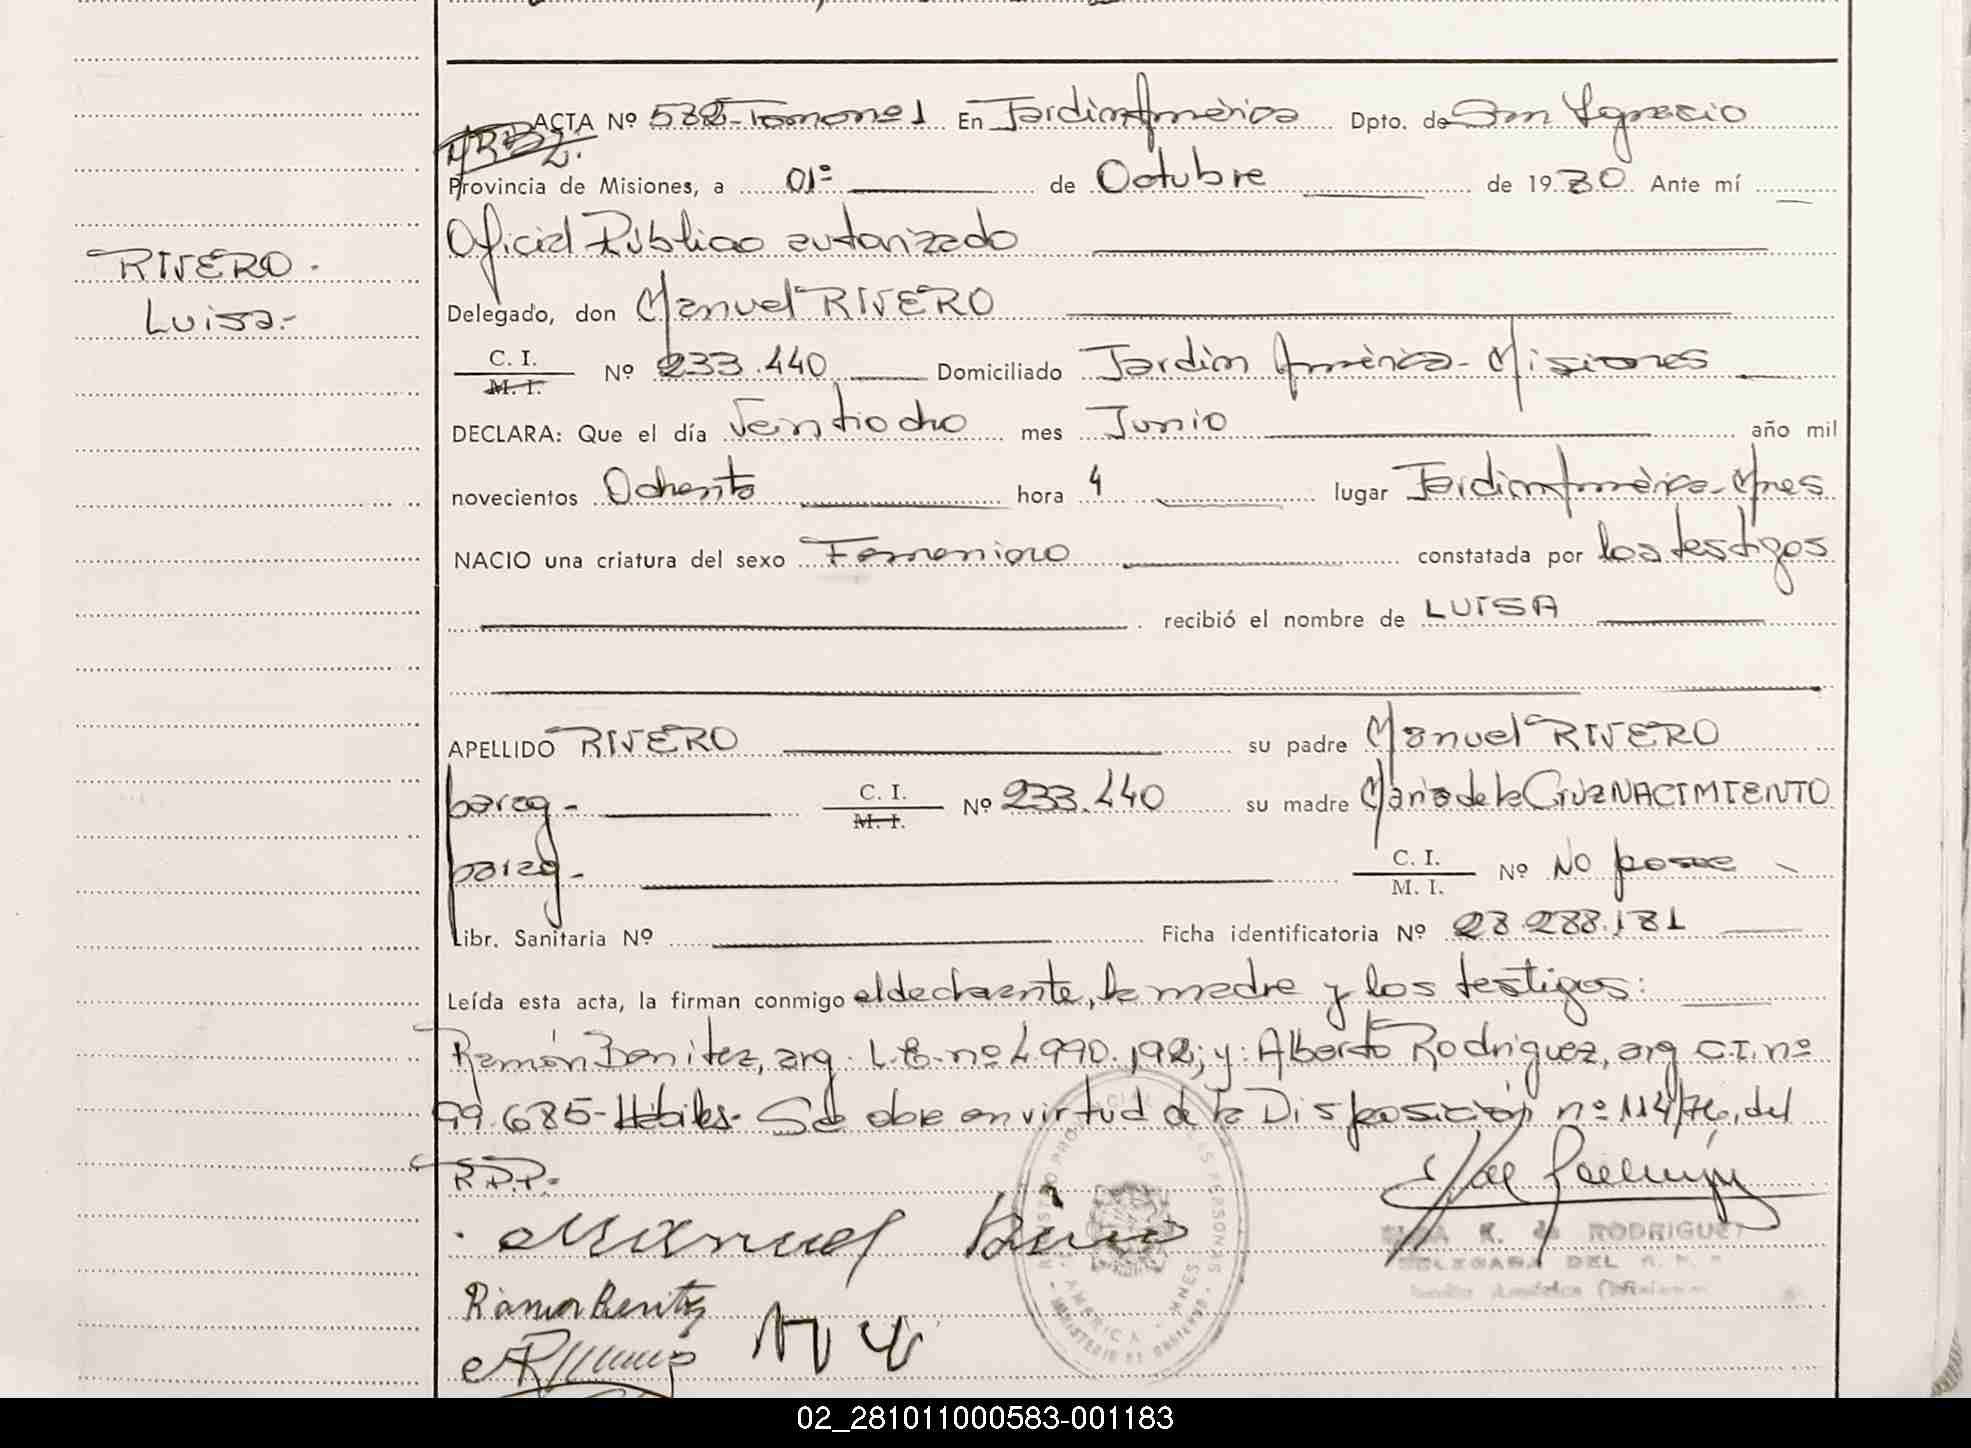 ACTA Nº 582-Tomo nº1 En Jardín América Dpto. de San Ignacio
Provincia de Misiones, a 01º de Octubre de 1980 Ante mí
Oficial Público autorizado
RIVERO.
Luisa.-
Delegado, don Manuel RIVERO
C. I.
M. I.
Nº 233.440 Domiciliado Jardín América- Misiones
DECLARA: Que el día Veintiocho mes Junio año mil
novecientos Ochenta hora 4 lugar Jardín América-Mnes
NACIO una criatura del sexo Femenino constatada por los testigos
recibió el nombre de LUISA
APELLIDO RIVERO su padre Manuel RIVERO
parag- C. I.
M. I.
Nº 233.440 su madre María de la Cruz NACIMIENTO
parag- C. I.
M. I.
Nº No posee
Libr. Sanitaria Nº Ficha identificatoria Nº 28.288.181
Leída esta acta, la firman conmigo el declarante, la madre y los testigos:
Ramón Benitez, arg. L.E. nº 4.990.192; y: Alberto Rodriguez, arg C.I. nº
99.685-Hábiles- Se abre en virtud de la Disposición nº 114/76, del
R.P.P.-
Manuel Rivero
Ramon Benitez
K. de RODRIGUEZ
DELEGADA DEL
MINISTERIO DE GOBIERNO
AMERICA - MNES
02_281011000583-001183